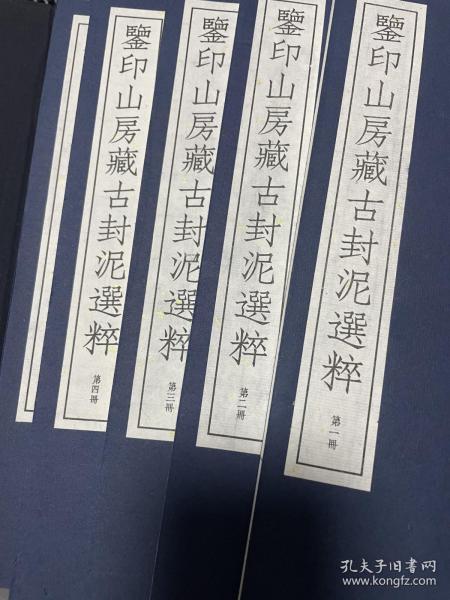 鑒印山房藏古封泥選粹
第一冊
鑒印山房藏古封泥選粹
第二冊
鑒印山房藏古封泥選粹
第三冊
鑒印山房藏古封泥選粹
第四冊
孔夫子旧书网
www.kongfz.com